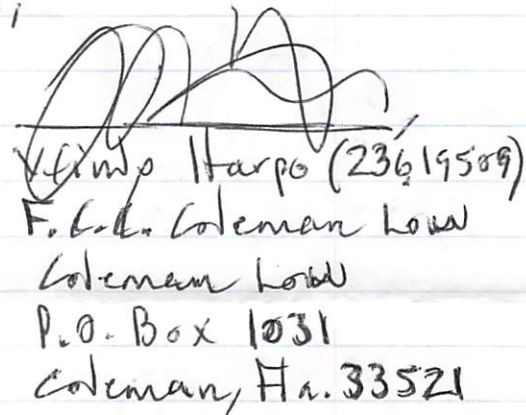 Harpo (23619509)
F.C.C. Coleman Low
Coleman Low
P.O. Box 1031
Coleman, Fla. 33521